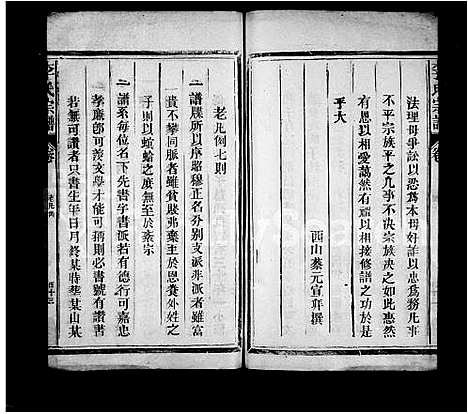 法理毋爭訟以忿為本毋奸詭以忠為務凡事
不平宗族平之几事不決宗族決之如此惠然
有恩以相愛藹然有禮以相接修譜之功於是
乎大
西山蔡元宣拜撰
老凡例七則
一譜牒所以序昭穆正名分别支派非派者雖富
貴不攀同脈者雖貧賤弗棄至於恩養外姓之
子則以螟蛉之庶無至於紊宗
一譜系每位名下先書字書派若有德行可嘉忠
孝廉節可羨文學才能可稱則必書號有讚書
若無可讚者只書生年日月終某時葬某山某
李氏宗譜
卷
老凡例
李氏宗譜
卷